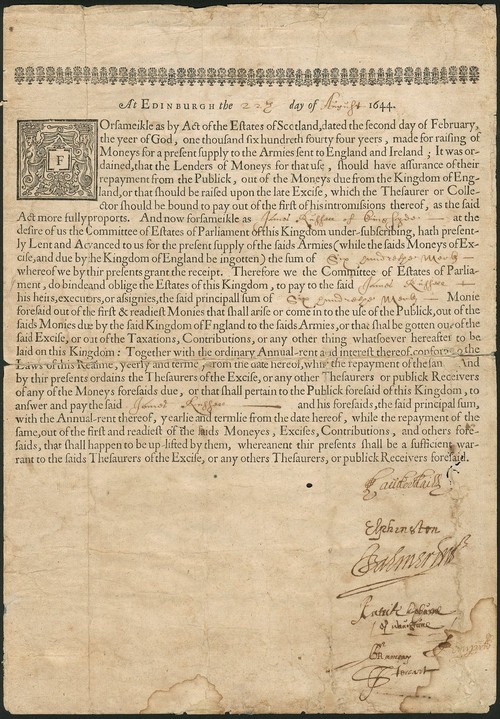 At EDINBURGH the 22 day of August 1644.
FOrsameikle as by Act of the Estates of Scotland, dated the second day of February,
the yeer of God, one thousand six hundreth fourty four yeers, made for raising of
Moneys for a present supply to the Armies sent to England and Ireland; It was or-
dained, that the Lenders of Moneys for that use, should have assurance of their
repayment from the Publick, out of the Moneys due from the Kingdom of Eng-
land, or that should be raised upon the late Excise, which the Thesaurer or Colle-
ctor should be bound to pay out of the first of his intromissions thereof, as the said
Act more fully proports. And now forsameikle as James Russell of at the
desire of us the Committee of Estates of Parliament of this Kingdom under-subscribing, hath present-
ly Lent and Advanced to us for the present supply of the saids Armies (while the saids Moneys of Ex-
cise, and due by the Kingdom of England be ingotten) the sum of Six hundrethe Merks
whereof we by thir presents grant the receipt. Therefore we the Committee of Estates of Parlia-
ment, do binde and oblige the Estates of this Kingdom, to pay to the said James Russell
his heirs, executors, or assignies, the said principall sum of Six hundrethe Merks Monie
foresaid out of the first & readiest Monies that shall arise or come in to the use of the Publick, out of the
saids Monies due by the said Kingdom of England to the saids Armies, or that shal be gotten out of the
said Excise, or out of the Taxations, Contributions, or any other thing whatsoever hereafter to be
laid on this Kingdom: Together with the ordinary Annual-rent and interest thereof, conform to the
Laws of this Realme, yeerly and terme, from the date hereof, whil the repayment of the sam. And
by thir presents ordains the Thesaurers of the Excise, or any other Thesaurers or publick Receivers
of any of the Moneys foresaids due, or that shall pertain to the Publick foresaid of this Kingdom, to
answer and pay the said James Russell and his foresaids, the said principal sum,
with the Annual-rent thereof, yearlie and termlie from the date hereof, while the repayment of the
same, out of the first and readiest of the saids Moneyes, Excises, Contributions, and others fore-
saids, that shall happen to be up-lifted by them, whereanent thir presents shall be a sufficient war-
rant to the saids Thesaurers of the Excise, or any others Thesaurers, or publick Receivers foresaid.
Lauderdaill
Elphinston
Balmerino
Stewart